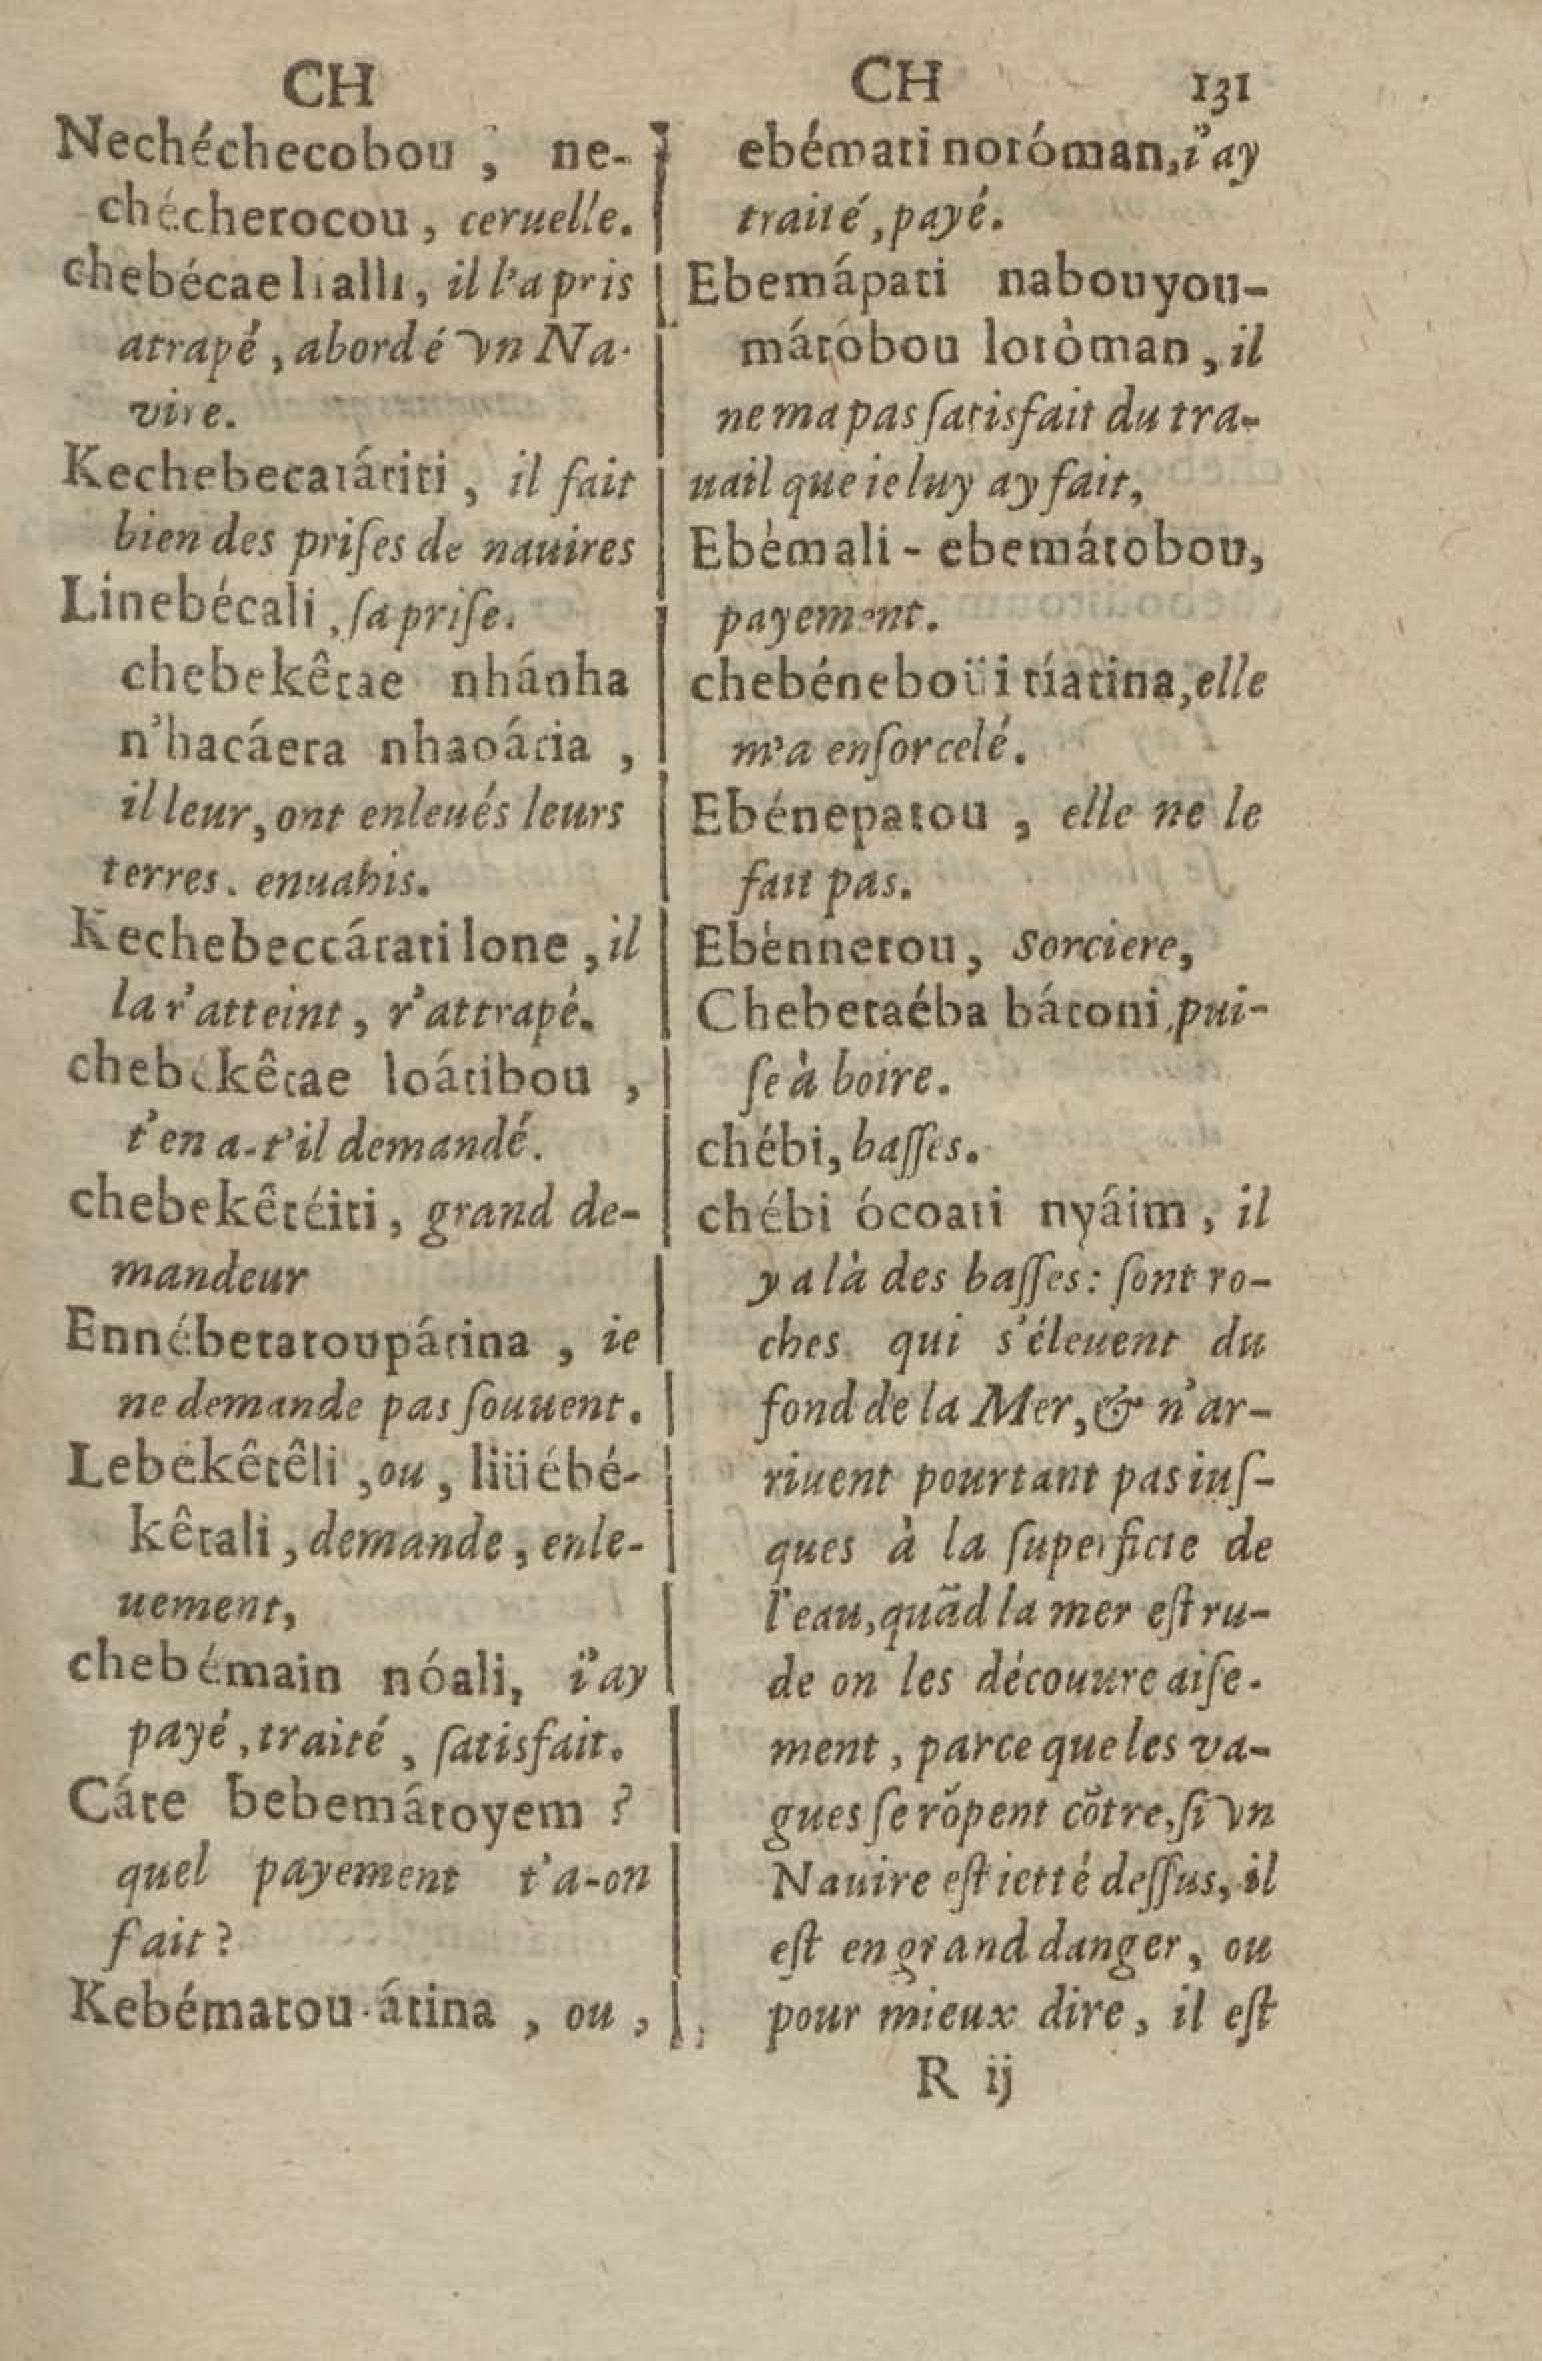 CH
Nechéchecobou, ne-
chécherocou, ceruelle.
chebécae lialli, il l'a pris
atrapé, abordé vn Na-
vire.
Kechebecatátiti, il fait
bien des priſes de nauires
Linebécali, ſa priſe.
chebekêtae nhánha
n'hacáera nhaoária,
il leur, ont enleués leurs
terres. enuahis.
Kechebeccátati lone, il
la r'atteint, r'attrapé.
chebekêtae loátibou,
t'en a-t'il demandé.
chebekêtéiti, grand de-
mandeur
Ennébetatoupátina, ie
ne demande pas ſouuent.
Lebekêtêli, ou, liüébé-
kêtali, demande, enle-
uement,
chebémain nóali, i'ay
payé, traité, ſatisfait.
Cáte bebemátoyem?
quel payement t'a-on
fait?
Kebématou-átina, ou,
CH 131
ebémati notóman, i'ay
traité, payé.
Ebemápati nabouyou-
mátóbou lotòman, il
ne ma pas ſatisfait du tra-
uail que ie luy ay fait,
Ebémali-ebemátobou,
payement.
chebéneboüi tíatina, elle
m'a enſorcelé.
Ebénepatou, elle ne le
fait pas.
Ebènnetou, Sorciere,
Chebetaéba bátoni, pui-
ſe à boire.
chébi, baſſes.
chébi ócoati nyáim, il
y a là des baſſes: ſont ro-
ches qui s'éleuent du
fond de la Mer, & n'ar-
riuent pourtant pas iuſ-
ques à la ſuperficie de
l'eau, quãd la mer eſt ru-
de on les découure aiſe-
ment, parce que les va-
gues ſe rõpent cõtre, ſi vn
Nauire eſt ietté deſſus, il
eſt en grand danger, ou
pour mieux dire, il eſt
R ij